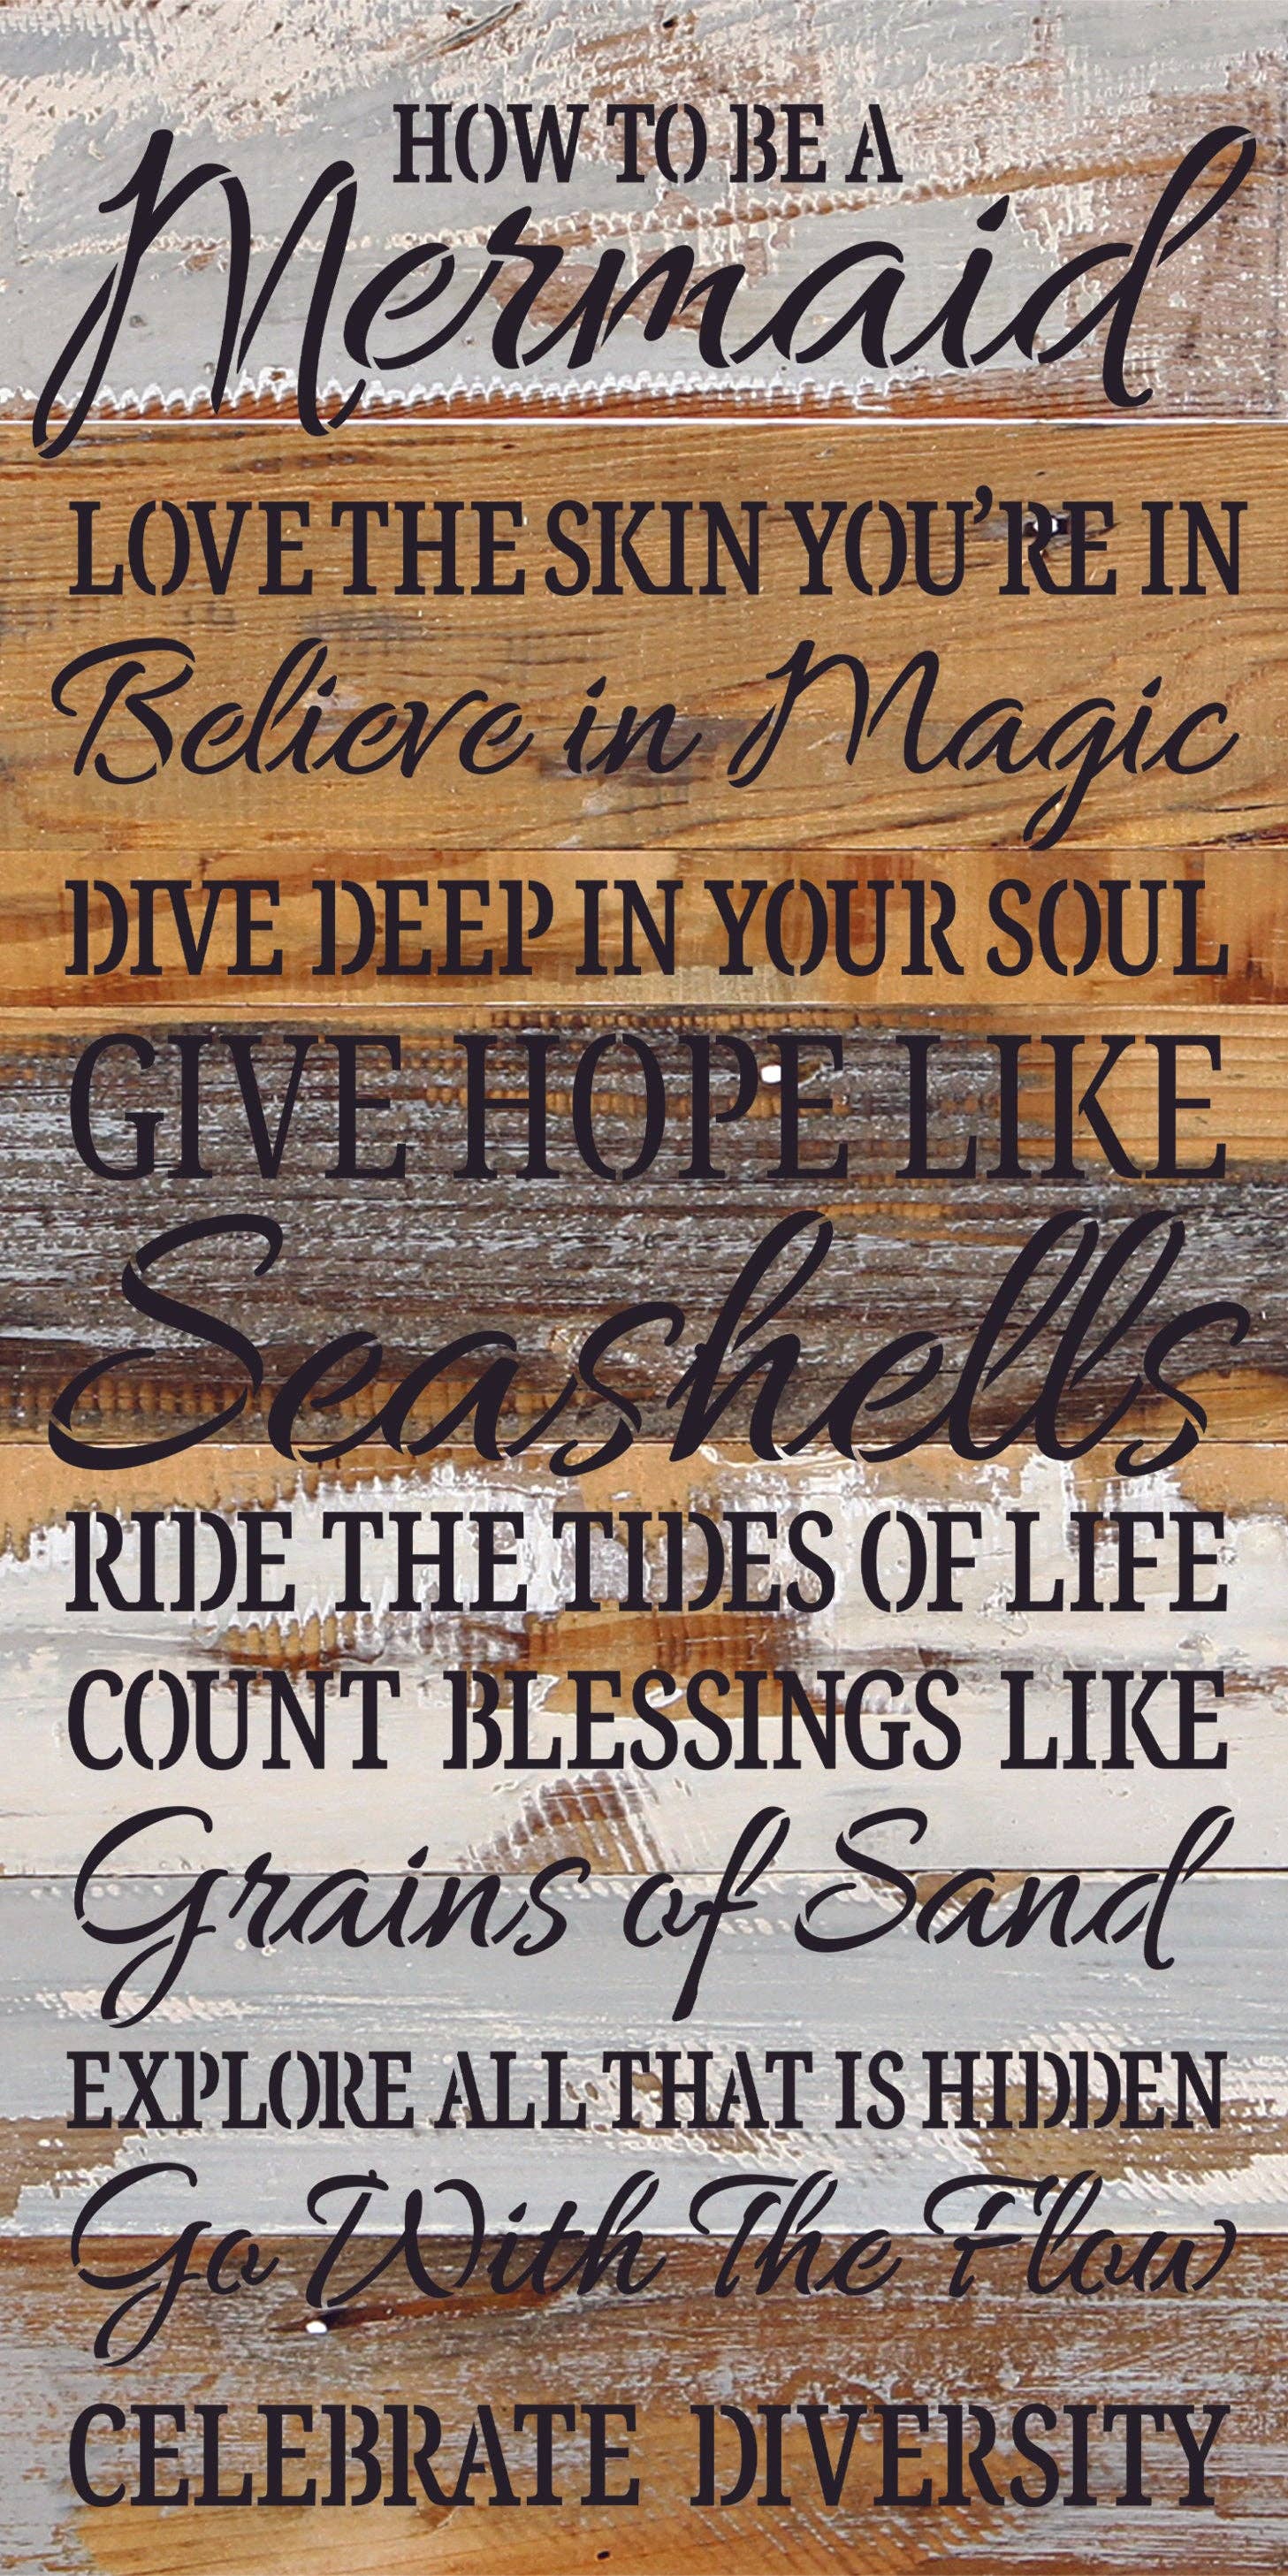 HOW TO BE A
Mermaid
LOVE THE SKIN YOU'RE IN
Believe in Magic
DIVE DEEP IN YOUR SOUL
GIVE HOPE LIKE
Seashells
RIDE THE TIDES OF LIFE
COUNT BLESSINGS LIKE
Grains of Sand
EXPLORE ALL THAT IS HIDDEN
Go With The Flow
CELEBRATE DIVERSITY